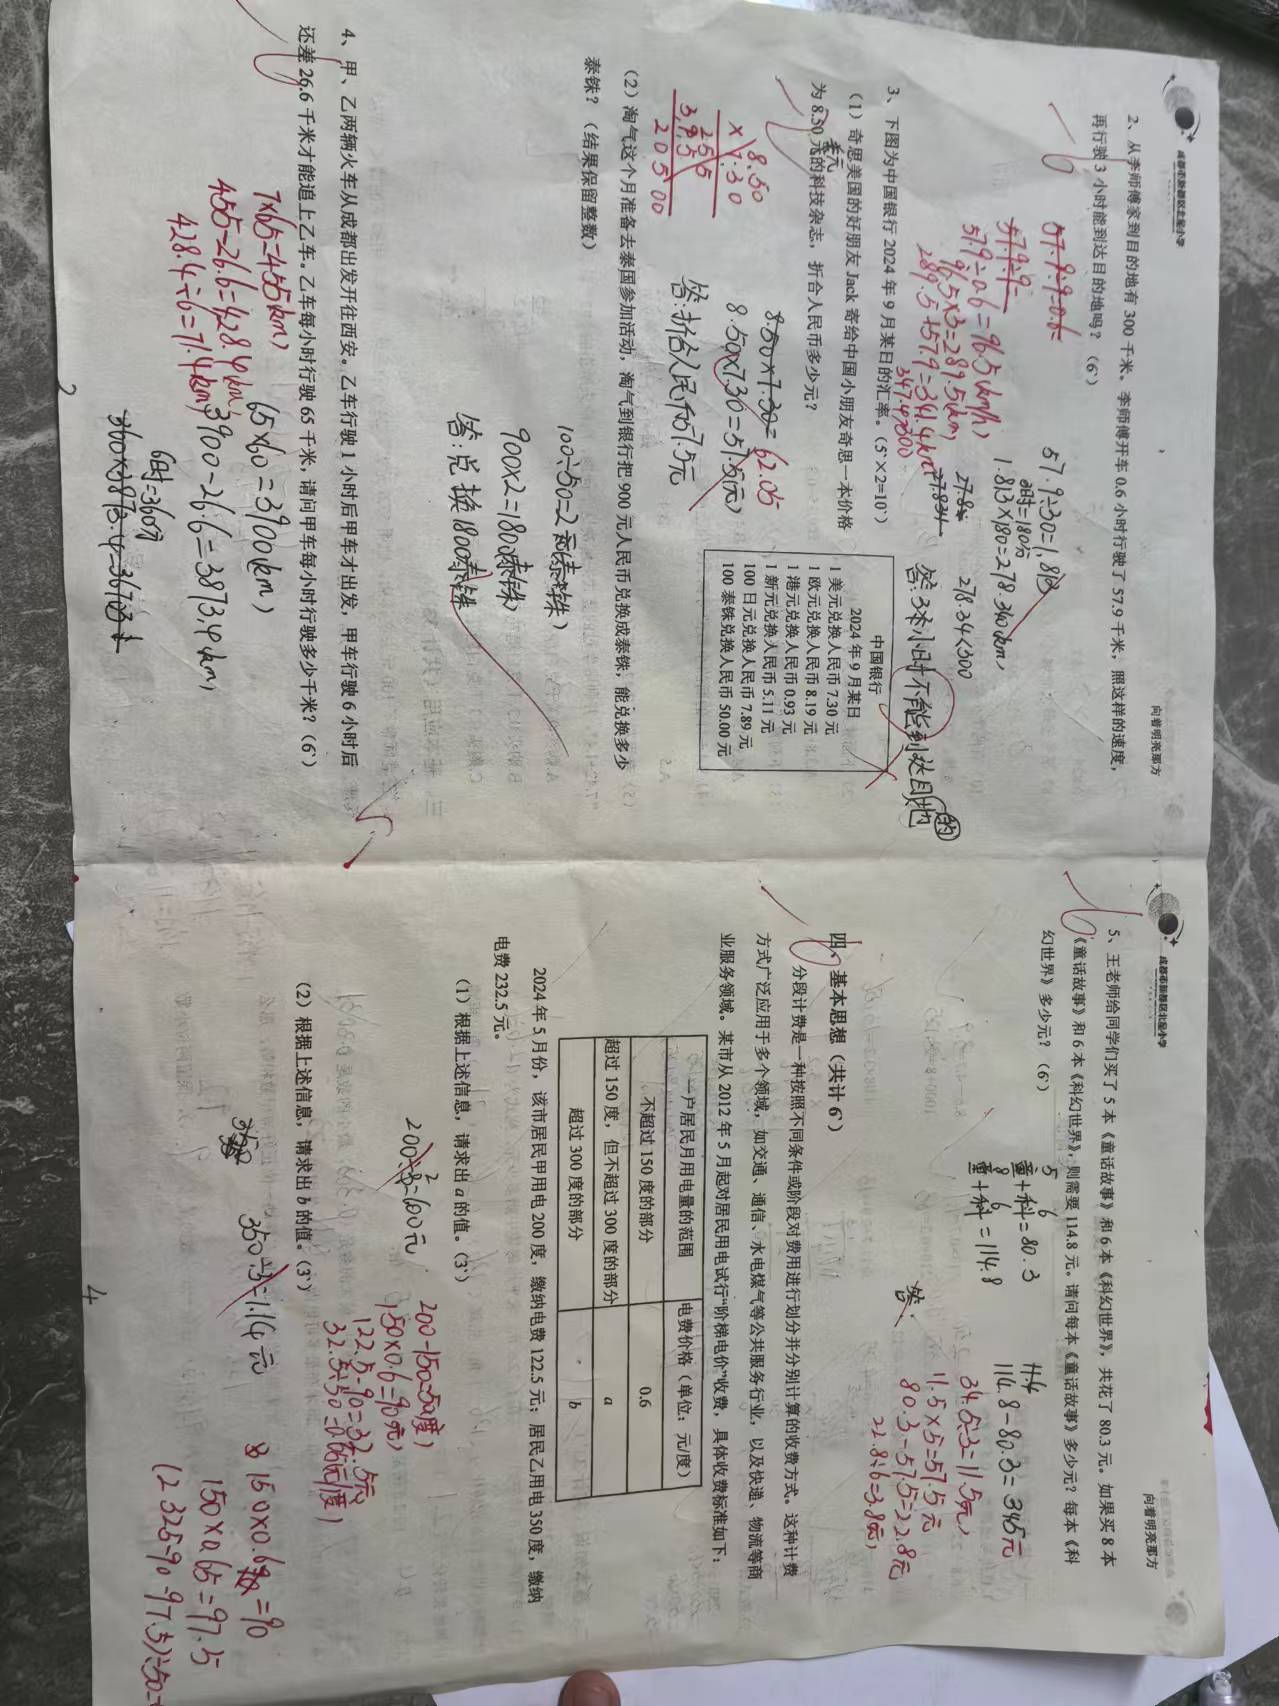 成都市新都区北星小学
向着明亮那方
2、从李师傅家到目的地有 300 千米。李师傅开车 0.6 小时行驶了 57.9 千米，照这样的速度，
再行驶 3 小时能到达目的地吗？（6`）
57.9÷0.6=96.5(km/h)
96.5×3=289.5(km)
57.9÷30=1.813
3时=180分
1.813×180=278.34(km)
278.34<300
3、下图为中国银行 2024 年 9 月某日的汇率。（5`×2=10`）
（1）奇思美国的好朋友 Jack 寄给中国小朋友奇思一本价格
为 8.50 美元的科技杂志，折合人民币多少元？
中国银行
2024 年 9 月某日
1 美元兑换人民币 7.30 元
1 欧元兑换人民币 8.19 元
1 港元兑换人民币 0.93 元
1 新元兑换人民币 5.11 元
100 日元兑换人民币 7.89 元
100 泰铢兑换人民币 50.00 元
8.50
×7.30
255
20500
8.50×7.30=62.05
（2）淘气这个月准备去泰国参加活动，淘气到银行把 900 元人民币兑换成泰铢，能兑换多少
泰铢？（结果保留整数）
900×2=1800(泰铢)
答:兑换1800泰铢
4、甲、乙两辆火车从成都出发开往西安。乙车行驶 1 小时后甲车才出发，甲车行驶 6 小时后
还差 26.6 千米才能追上乙车。乙车每小时行驶 65 千米，请问甲车每小时行驶多少千米？（6`）
7×65=455(km)
455-26.6=428.4(km)
428.4÷6=71.4(km)
65×60=3900(km)
3900-26.6=3873.4(km)
6时=360分
成都市新都区北星小学
向着明亮那方
5、王老师给同学们买了 5 本《童话故事》和 6 本《科幻世界》，共花了 80.3 元。如果买 8 本
《童话故事》和 6 本《科幻世界》，则需要 114.8 元。请问每本《童话故事》多少元？每本《科
幻世界》多少元？（6`）
5 6
童+科=80.3
8 6
童+科=114.8
114.8-80.3=34.5元
34.5÷3=11.5(元)
11.5×5=57.5元
80.3-57.5=22.8元
22.8÷6=3.8(元)
答:
四、基本思想（共计 6`）
分段计费是一种按照不同条件或阶段对费用进行划分并分别计算的收费方式。这种计费
方式广泛应用于多个领域，如交通、通信、水电煤气等公共服务行业，以及快递、物流等商
业服务领域。某市从 2012 年 5 月起对居民用电试行“阶梯电价”收费，具体收费标准如下：
一户居民月用电量的范围 电费价格（单位：元/度）
不超过 150 度的部分 0.6
超过 150 度，但不超过 300 度的部分 a
超过 300 度的部分 b
2024 年 5 月份，该市居民甲用电 200 度，缴纳电费 122.5 元；居民乙用电 350 度，缴纳
电费 232.5 元。
（1）根据上述信息，请求出 a 的值。（3`）
200-150=50(度)
150×0.6=90(元)
122.5-90=32.5(元)
32.5÷50=0.65(元/度)
（2）根据上述信息，请求出 b 的值。（3`）
150×0.65=97.5
4